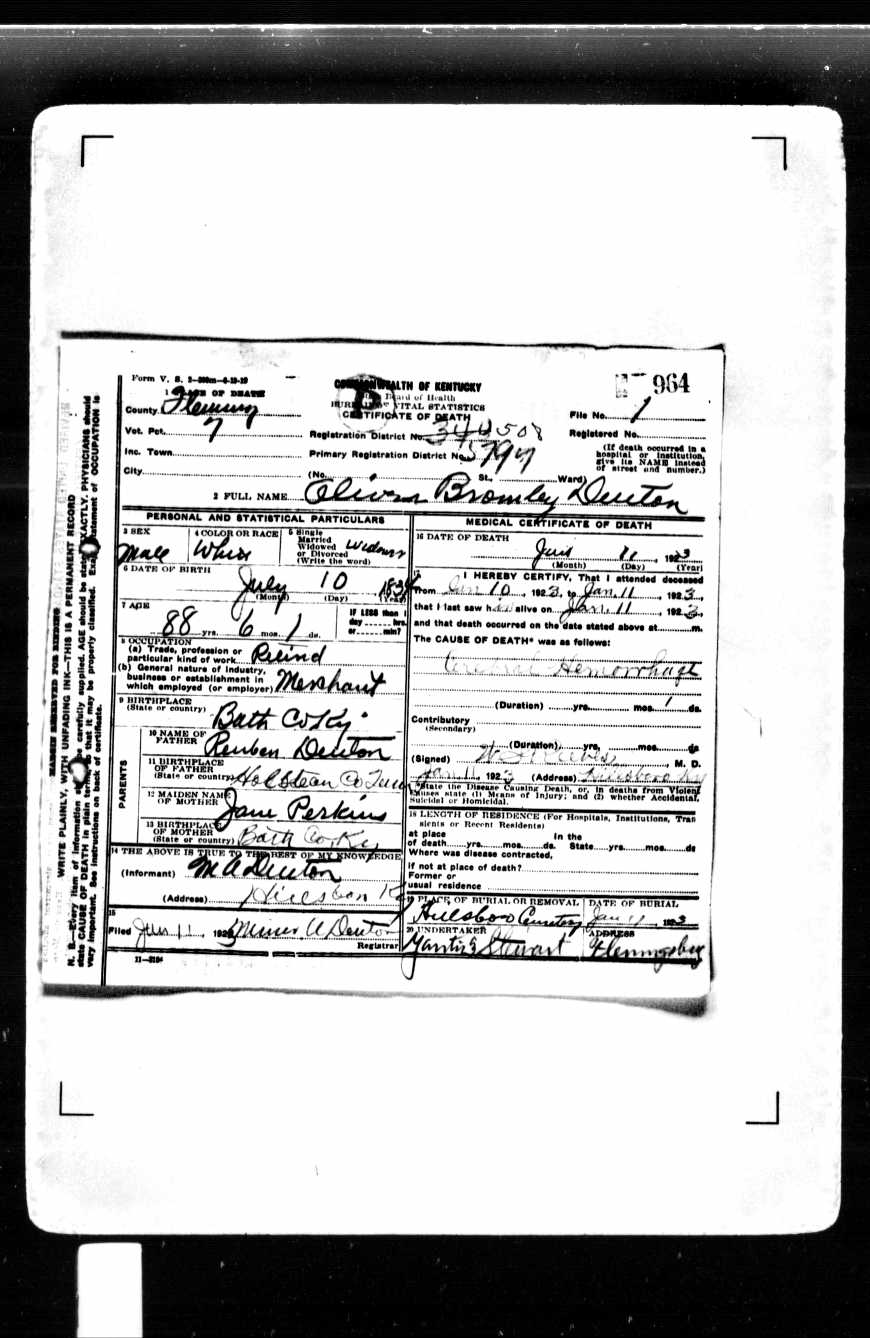 Form V. S.
964
COMMONWEALTH OF KENTUCKY
Board of Health
VITAL STATISTICS
CERTIFICATE OF DEATH
OF DEATH
County Fleming
File No. 1
Vot. Pct. 7
Registration District No. 508
Registered No.
Inc. Town
Primary Registration District No. 5797
(If death occurred in a hospital or institution, give its NAME instead of street and number.)
City
(No. St., Ward)
2 FULL NAME Oliver Bromley Denton
PERSONAL AND STATISTICAL PARTICULARS
3 SEX
Male
4 COLOR OR RACE
White
5 Single
Married
Widowed
or Divorced
(Write the word)
6 DATE OF BIRTH
July 10 1834
(Month) (Day) (Year)
7 AGE
88 yrs. 6 mos. 1 ds.
If LESS than 1
day hrs.
or min?
8 OCCUPATION
(a) Trade, profession or
particular kind of work
(b) General nature of industry,
business or establishment in
which employed (or employer) Merchant
9 BIRTHPLACE
(State or country) Bath Co Ky.
PARENTS
10 NAME OF
FATHER Reuben Denton
11 BIRTHPLACE
OF FATHER
(State or country)
12 MAIDEN NAME
OF MOTHER Jane Perkins
13 BIRTHPLACE
OF MOTHER
(State or country) Bath Co Ky
14 THE ABOVE IS TRUE TO THE BEST OF MY KNOWLEDGE
(Informant) M A Denton
(Address)
15
Filed Jan 11, 1923 Denton
Registrar
11—3184
MEDICAL CERTIFICATE OF DEATH
16 DATE OF DEATH
Jan 11, 1923
(Month) (Day) (Year)
17 I HEREBY CERTIFY, That I attended deceased
from Jan 10, 1923, to Jan. 11, 1923,
that I last saw him alive on Jan. 11, 1923,
and that death occurred on the date stated above at m.
The CAUSE OF DEATH* was as follows:
Cerebral Hemorrhage
(Duration) yrs. mos. 1 ds.
Contributory
(Secondary)
(Duration) yrs. mos. ds
(Signed) M. D.
Jan. 11, 1923 (Address) Hillsboro Ky
*State the Disease Causing Death, or, in deaths from Violent
Causes state (1) Means of Injury; and (2) whether Accidental,
Suicidal or Homicidal.
18 LENGTH OF RESIDENCE (For Hospitals, Institutions, Tran
sients or Recent Residents)
at place In the
of death yrs. mos. ds. State yrs. mos. ds
Where was disease contracted,
if not at place of death?
Former or
usual residence
19 PLACE OF BURIAL OR REMOVAL
Hillsboro Cemetery
DATE OF BURIAL
Jan 11 1923
20 UNDERTAKER
Stewart
ADDRESS
Flemingsburg
MARGIN RESERVED FOR BINDING
WRITE PLAINLY, WITH UNFADING INK—THIS IS A PERMANENT RECORD
N. B.—Every item of information be carefully supplied. AGE should be stated EXACTLY. PHYSICIANS should
state CAUSE OF DEATH in plain terms, so that it may be properly classified. statement of OCCUPATION is
very important. See instructions on back of certificate.